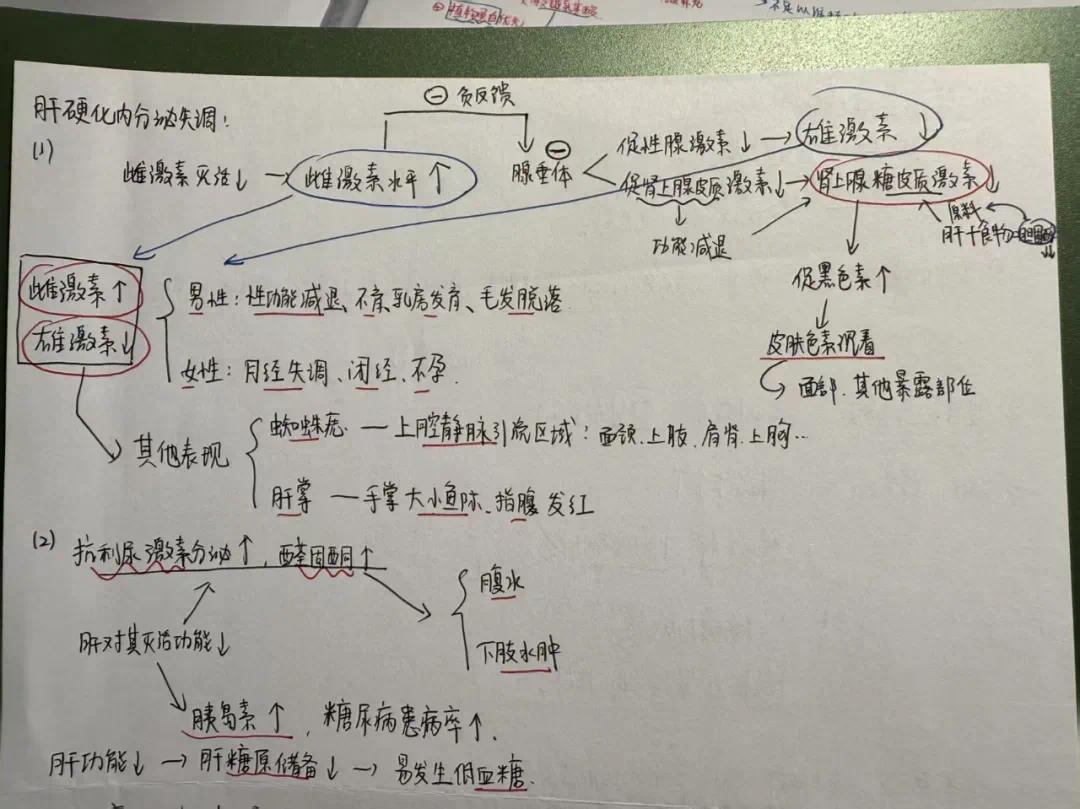 植物蛋白优先
肝硬化内分泌失调:
⊖ 负反馈
(1)
雌激素灭活↓ → 雌激素水平↑
腺垂体 ⊖
促性腺激素↓ → 雄激素↓
促肾上腺皮质激素↓ → 肾上腺糖皮质激素↓
功能减退
原料
肝+食物→胆固醇↓↓
促黑色素↑
皮肤色素沉着
面部、其他暴露部位
雌激素↑
雄激素↓
男性: 性功能减退、不育、乳房发育、毛发脱落
女性: 月经失调、闭经、不孕.
其他表现
蜘蛛痣 — 上腔静脉引流区域: 面颈、上肢、肩背、上胸…
肝掌 — 手掌大小鱼际、指腹发红
(2) 抗利尿激素分泌↑, 醛固酮↑
腹水
下肢水肿
肝对其灭活功能↓
胰岛素↑, 糖尿病患病率↑.
肝功能↓ → 肝糖原储备↓ → 易发生低血糖.